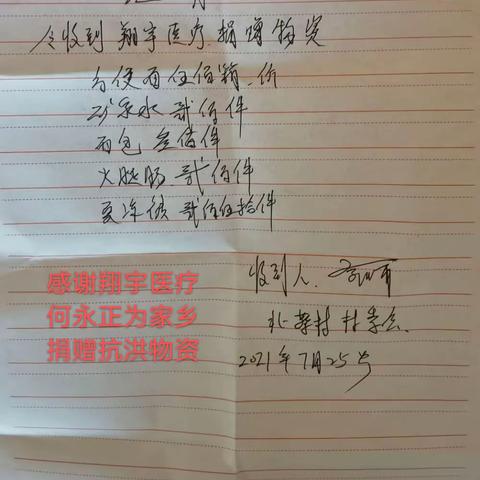 今收到翔宇医疗.捐赠物资
方便面伍佰箱.
矿泉水 贰佰件
面包 叁佰件
火腿肠.贰佰件
贰佰伍拾件
收到人.
村村委会.
2021年7月25号
感谢翔宇医疗
何永正为家乡
捐赠抗洪物资